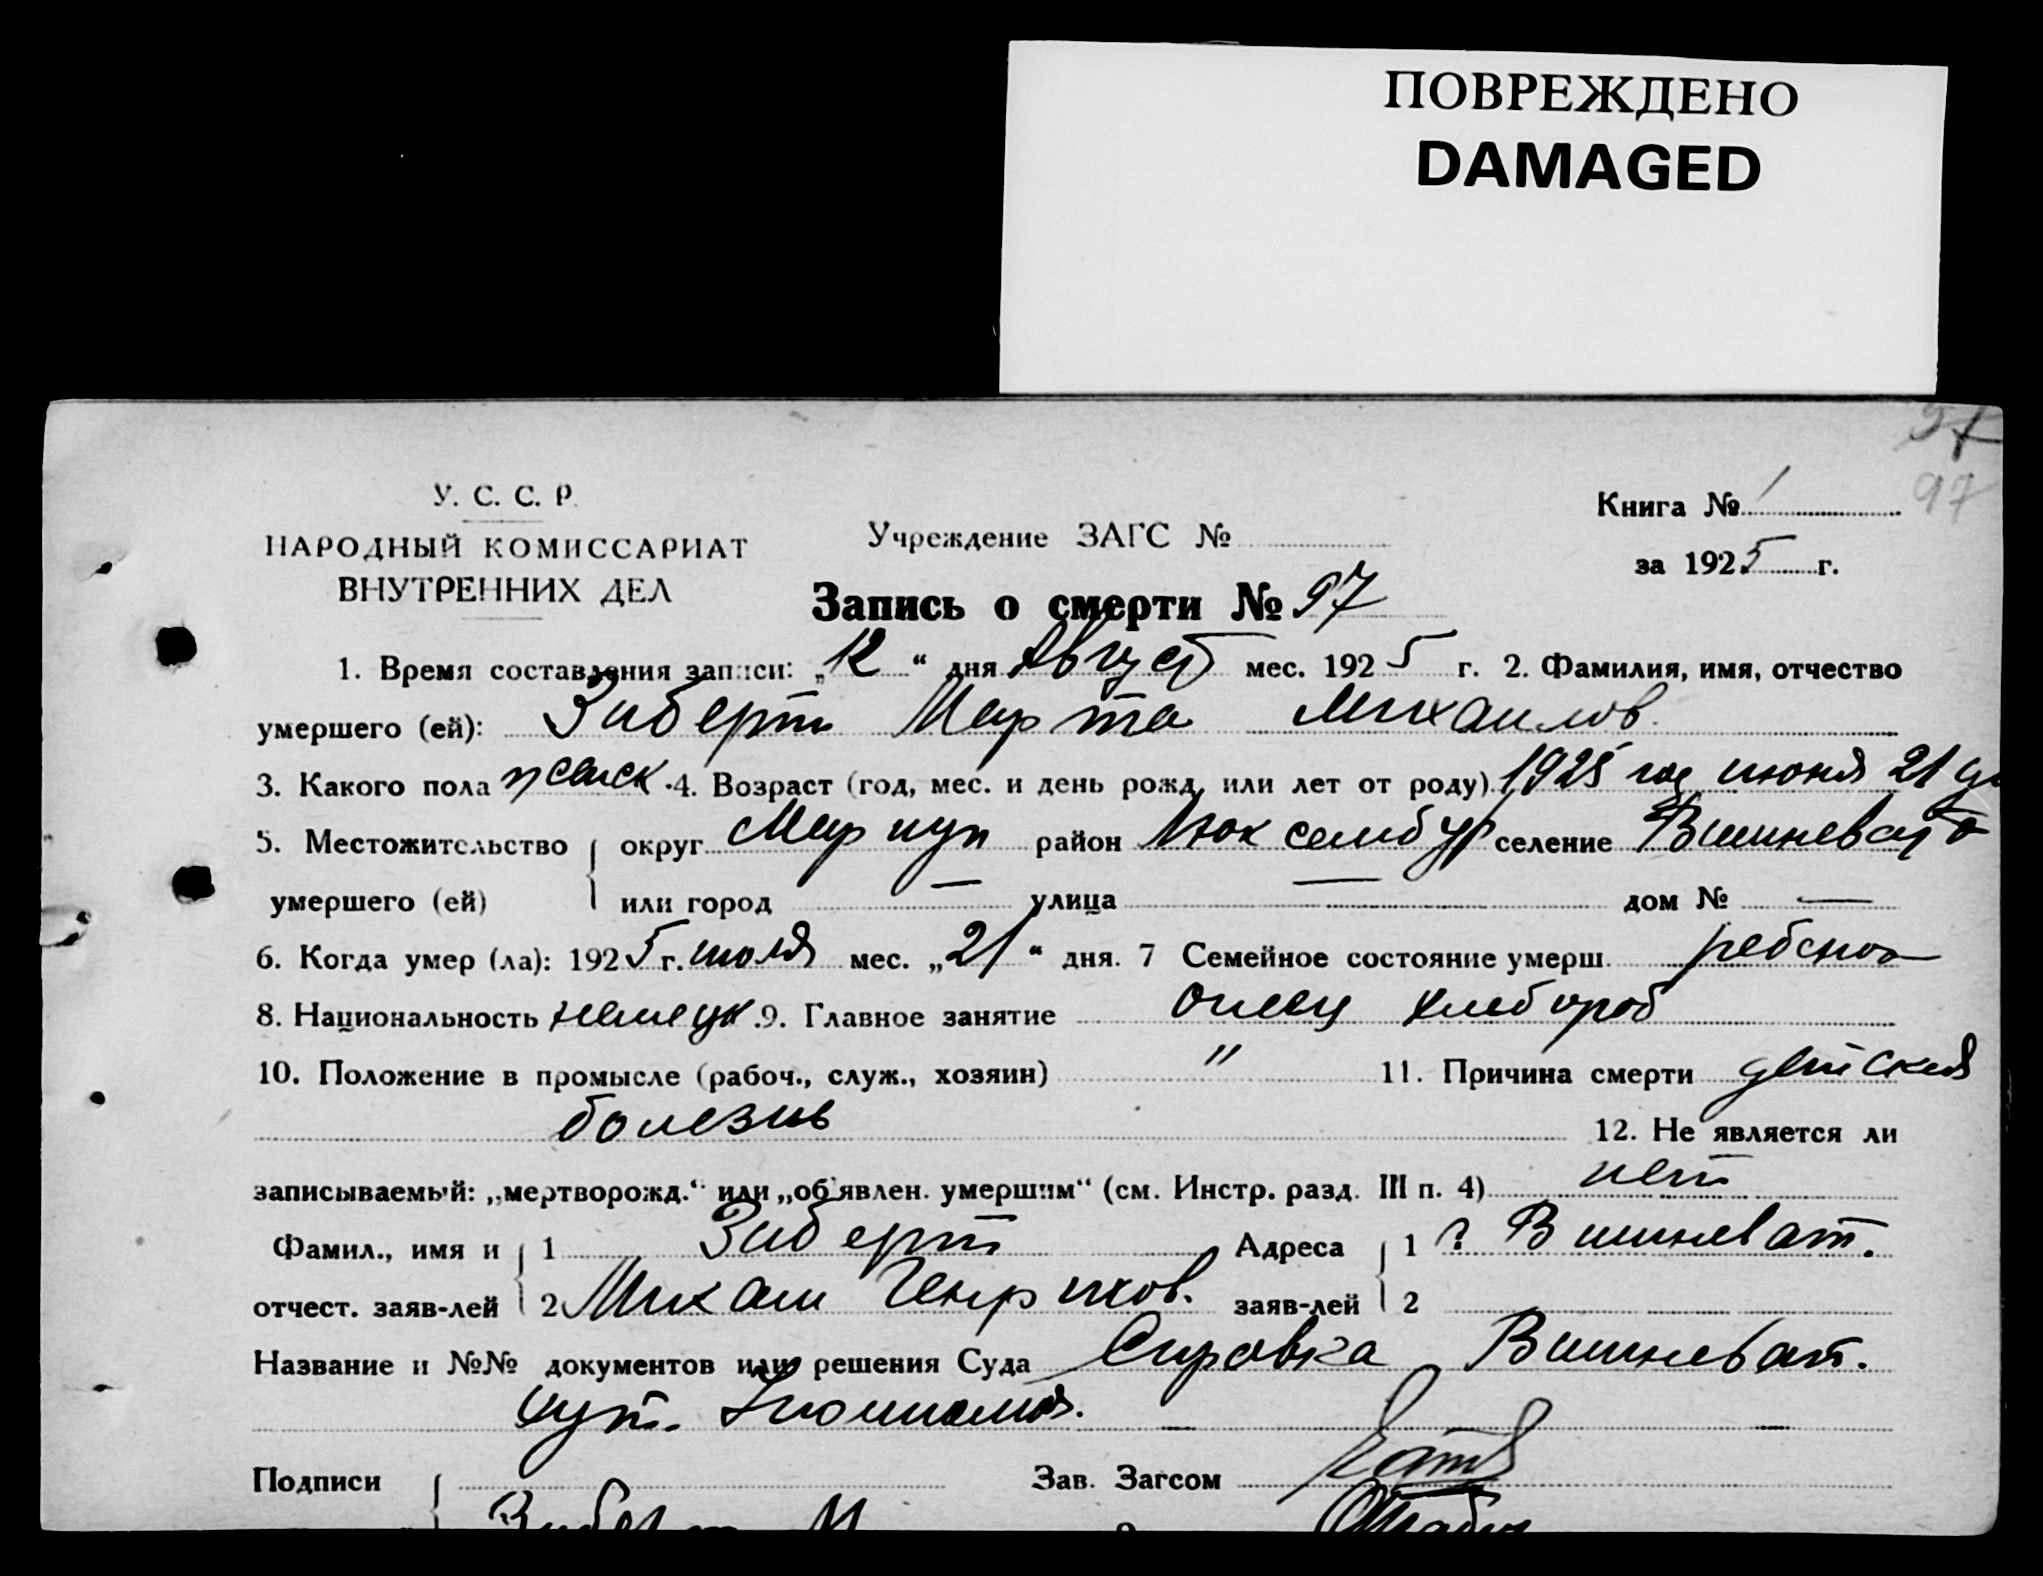 ПОВРЕЖДЕНО
DAMAGED
97
97
У. С. С. Р.
НАРОДНЫЙ КОМИССАРИАТ
ВНУТРЕННИХ ДЕЛ
Учреждение ЗАГС №
Книга № 1
за 1925 г.
Запись о смерти № 97
1. Время составления записи: „12“ дня Август мес. 1925 г. 2. Фамилия, имя, отчество
умершего (ей): Зиберт Марта Михаилов.
3. Какого пола женск. 4. Возраст (год, мес. и день рожд. или лет от роду) 1925 год июня 21 дн
5. Местожительство округ Мариуп район Люксембур селение Вишневато
умершего (ей) или город — улица — дом № —
6. Когда умер (ла): 1925 г. июля мес. „21“ дня. 7 Семейное состояние умерш. ребенок
8. Национальность немецк. 9. Главное занятие отец хлебороб
10. Положение в промысле (рабоч., служ., хозяин) " 11. Причина смерти детская
болезнь 12. Не является ли
записываемый: „мертворожд.“ или „об'явлен. умершим“ (см. Инстр. разд. III п. 4) нет
Фамил., имя и 1 Зиберт Адреса 1 ? Вишневат.
отчест. заяв-лей 2 Михаил Генрихов. заяв-лей 2
Название и №№ документов или решения Суда Справка Вишневат.
—
Подписи Зав. Загсом
Зиберт М